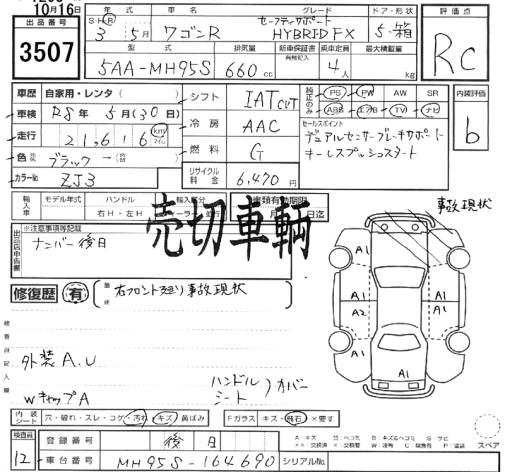 10月16日
出品番号
3507
年式 車名 グレード ドア・形状
S・H・R 3年 5月 ワゴンR セーフティサポート HYBRID FX 5・箱
型式 排気量 新車保証書 有無記入 乗車定員 最大積載量
5AA-MH95S 660 cc 4人 kg
評価点
RC
車歴 自家用・レンタ( )
車検 R8年 5月(30日)
走行 21,616 km マイル
色 元色 ブラック→(色替 )
カラーNo ZJ3
シフト IAT CVT
冷房 AAC
燃料 G
リサイクル料金 6,470円
純正のみ PS PW AW SR
ABS エアB TV ナビ
セールスポイント
デュアルセンサーブレーキサポート
キーレスプッシュスタート
内装評価
b
輸入車 モデル年式 ハンドル 輸入区分 書類有効期限
右H・左H ディーラー・並行 月 日迄
売切車輌
出品店申告欄 ※注意事項等記載
ナンバー後日
修復歴 有 箇所 右フロント廻り事故現状
事故現状
A1
A1
A1
A2
A1
A1
A1
A1
検査員記入欄
外装 A.U
WキャップA
ハンドル
シート
カバー
内装シート 穴・破れ・スレ・コゲ・汚れ・キズ・黄ばみ Fガラス キズ・飛石・×要す
検査員 12
登録番号 後日
車台番号 MH95S-164690 シリアルNo.
スペア